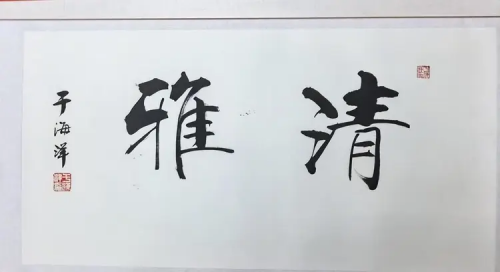 清雅
于海洋